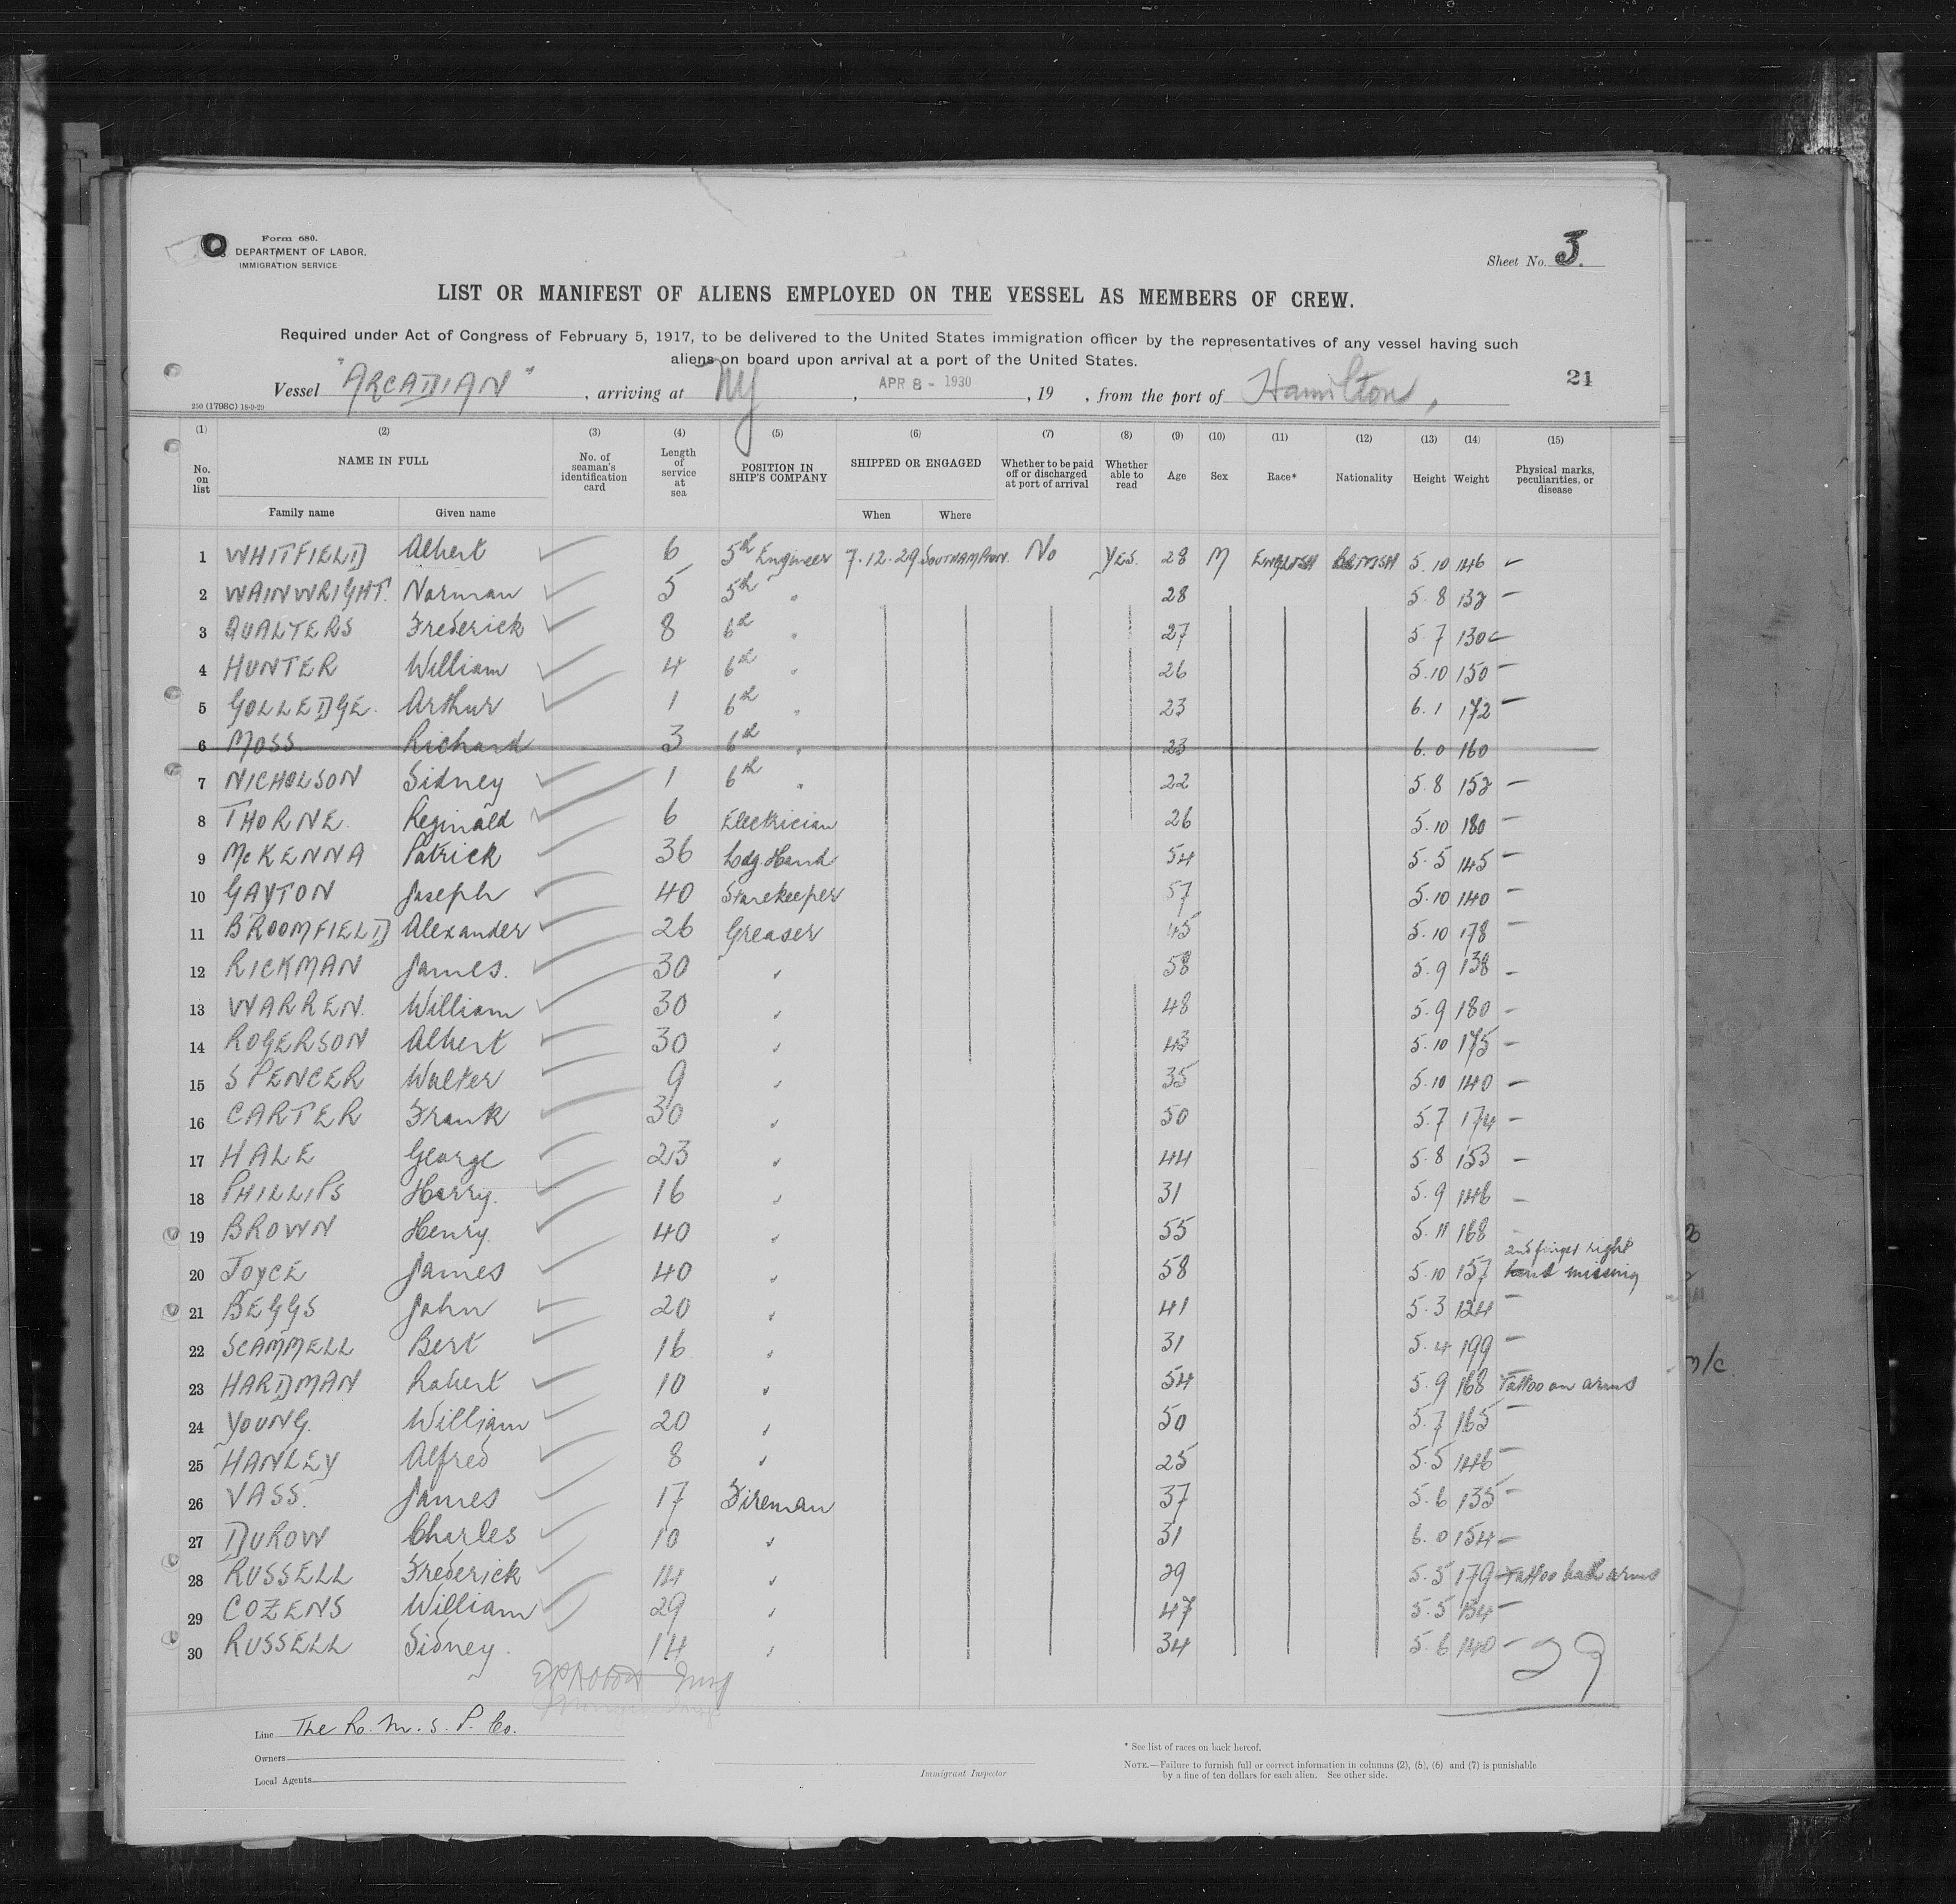 Form 680.
DEPARTMENT OF LABOR.
IMMIGRATION SERVICE
Sheet No. 3.
LIST OR MANIFEST OF ALIENS EMPLOYED ON THE VESSEL AS MEMBERS OF CREW.
Required under Act of Congress of February 5, 1917, to be delivered to the United States immigration officer by the representatives of any vessel having such
aliens on board upon arrival at a port of the United States.
Vessel "ARCADIAN", arriving at NY, APR 8 - 1930, 19 , from the port of Hamilton,
21
250 (1798C) 18-9-29
(1) (2) (3) (4) (5) (6) (7) (8) (9) (10) (11) (12) (13) (14) (15)
No. on list NAME IN FULL No. of seaman's identification card Length of service at sea POSITION IN SHIP'S COMPANY SHIPPED OR ENGAGED Whether to be paid off or discharged at port of arrival Whether able to read Age Sex Race* Nationality Height Weight Physical marks, peculiarities, or disease
Family name Given name When Where
1 WHITFIELD Albert 6 5th Engineer 7.12.29 SOUTHAMPTON. No YES. 28 M ENGLISH BRITISH 5.10 146 –
2 WAINWRIGHT. Norman 5 5th " 28 5.8 132 –
3 QUALTERS Frederick 8 6th " 27 5.7 130 –
4 HUNTER William 4 6th " 26 5.10 150 –
5 GOLLEDGE. Arthur 1 6th " 23 6.1 172 –
6 MOSS Richard 3 6th " 23 6.0 160
7 NICHOLSON Sidney 1 6th " 22 5.8 152 –
8 THORNE. Reginald 6 Electrician 26 5.10 180 –
9 McKENNA Patrick 36 Ldg Hand 54 5.5 145 –
10 GAYTON Joseph 40 Storekeeper 57 5.10 140 –
11 BROOMFIELD Alexander 26 Greaser 45 5.10 178 –
12 RICKMAN James. 30 " 58 5.9 138 –
13 WARREN. William 30 " 48 5.9 180 –
14 ROGERSON Albert 30 " 43 5.10 175 –
15 SPENCER Walter 9 " 35 5.10 140 –
16 CARTER Frank 30 " 50 5.7 174 –
17 HALE George 23 " 44 5.8 153 –
18 PHILLIPS Harry. 16 " 31 5.9 146 –
19 BROWN Henry. 40 " 55 5.11 168 –
20 JOYCE James 40 " 58 5.10 157 2nd finger right hand missing
21 BEGGS John 20 " 41 5.3 124 –
22 SCAMMELL Bert 16 " 31 5.4 199 –
23 HARDMAN Robert 10 " 54 5.9 168 Tattoo on arms
24 YOUNG. William 20 " 50 5.7 165 –
25 HANLEY Alfred 8 " 25 5.5 146 –
26 VASS. James 17 Fireman 37 5.6 135 –
27 DUROW Charles 10 " 31 6.0 154 –
28 RUSSELL Frederick 14 " 29 5.5 179 Tattoo both arms
29 COZENS William 29 " 47 5.5 134 –
30 RUSSELL Sidney. 14 " 34 5.6 140 –
29
Line The R. M. S. P. Co.
Owners
Local Agents
Immigrant Inspector
* See list of races on back hereof.
NOTE.—Failure to furnish full or correct information in columns (2), (5), (6) and (7) is punishable
by a fine of ten dollars for each alien. See other side.